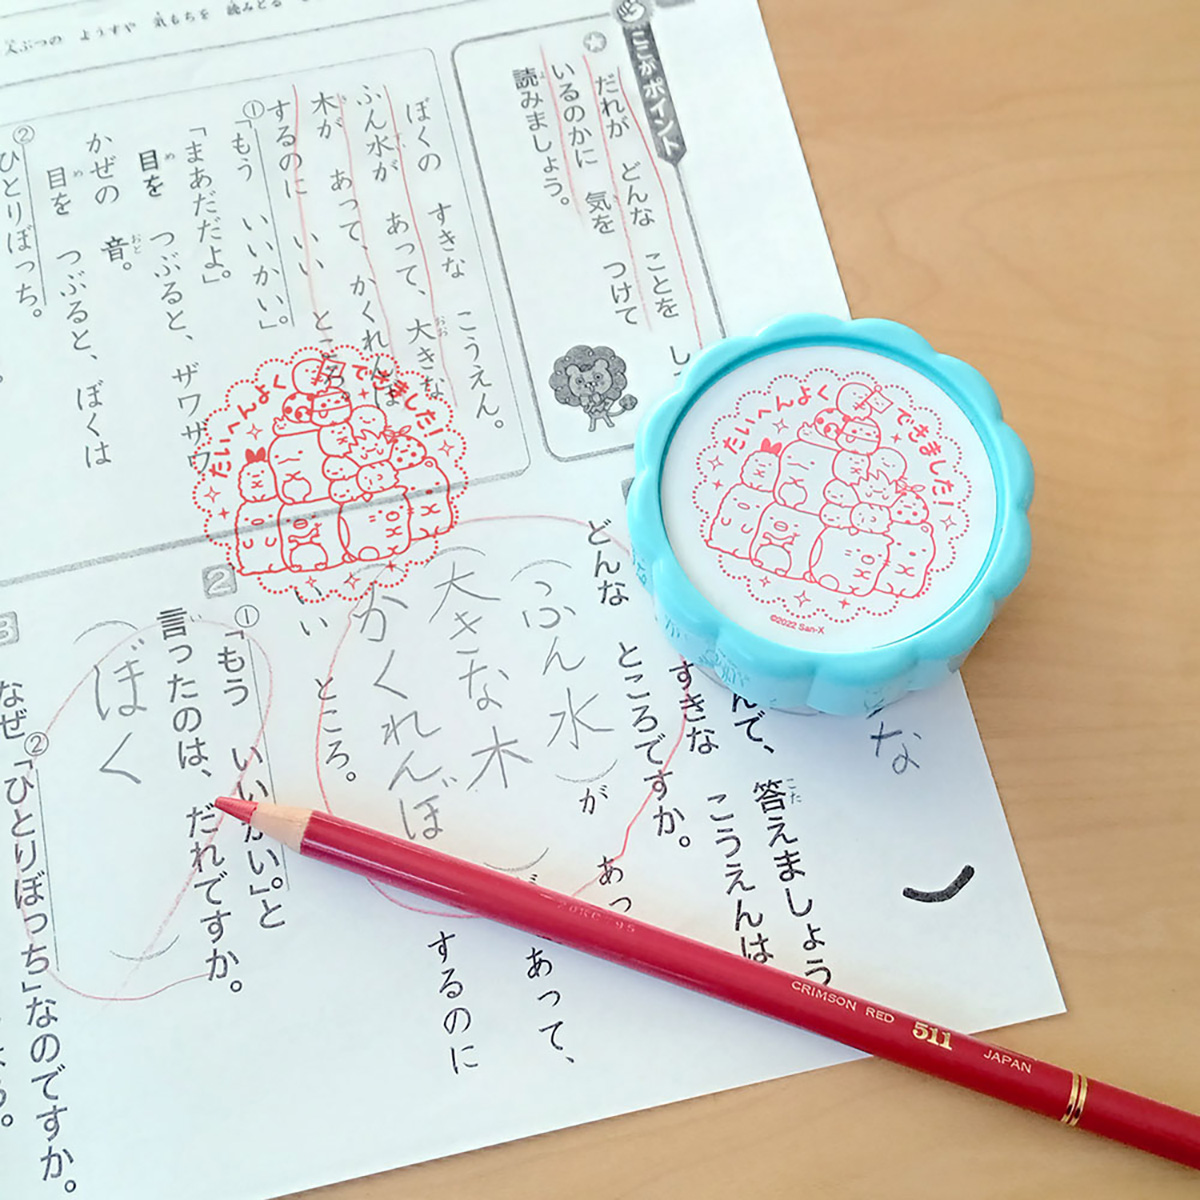 ようすや 気もちを 読みとる
ここがポイント
だれが どんな ことを し
いるのかに 気を つけて
読みましょう。
ぼくの すきな こうえん。
ふん水が あって、大きな
木が あって、かくれんぼ
するのに いい ところ。
①「もう いいかい。」
「まあだだよ。」
目を つぶると、ザワザワ
かぜの 音。
目を つぶると、ぼくは
②ひとりぼっち。
たいへんよく できました!
たいへんよく できました!
©2022 San-X
な
んで、答えましょう
すきな こうえんは
どんな ところですか。
(ふん水)が あっ
大きな木
あって、
(かくれんぼ)
するのに
いい ところ。
2
①「もう いいかい。」と
言ったのは、だれですか。
(ぼく)
3
②「ひとりぼっち」なのですか。
なぜ
CRIMSON RED 511 JAPAN